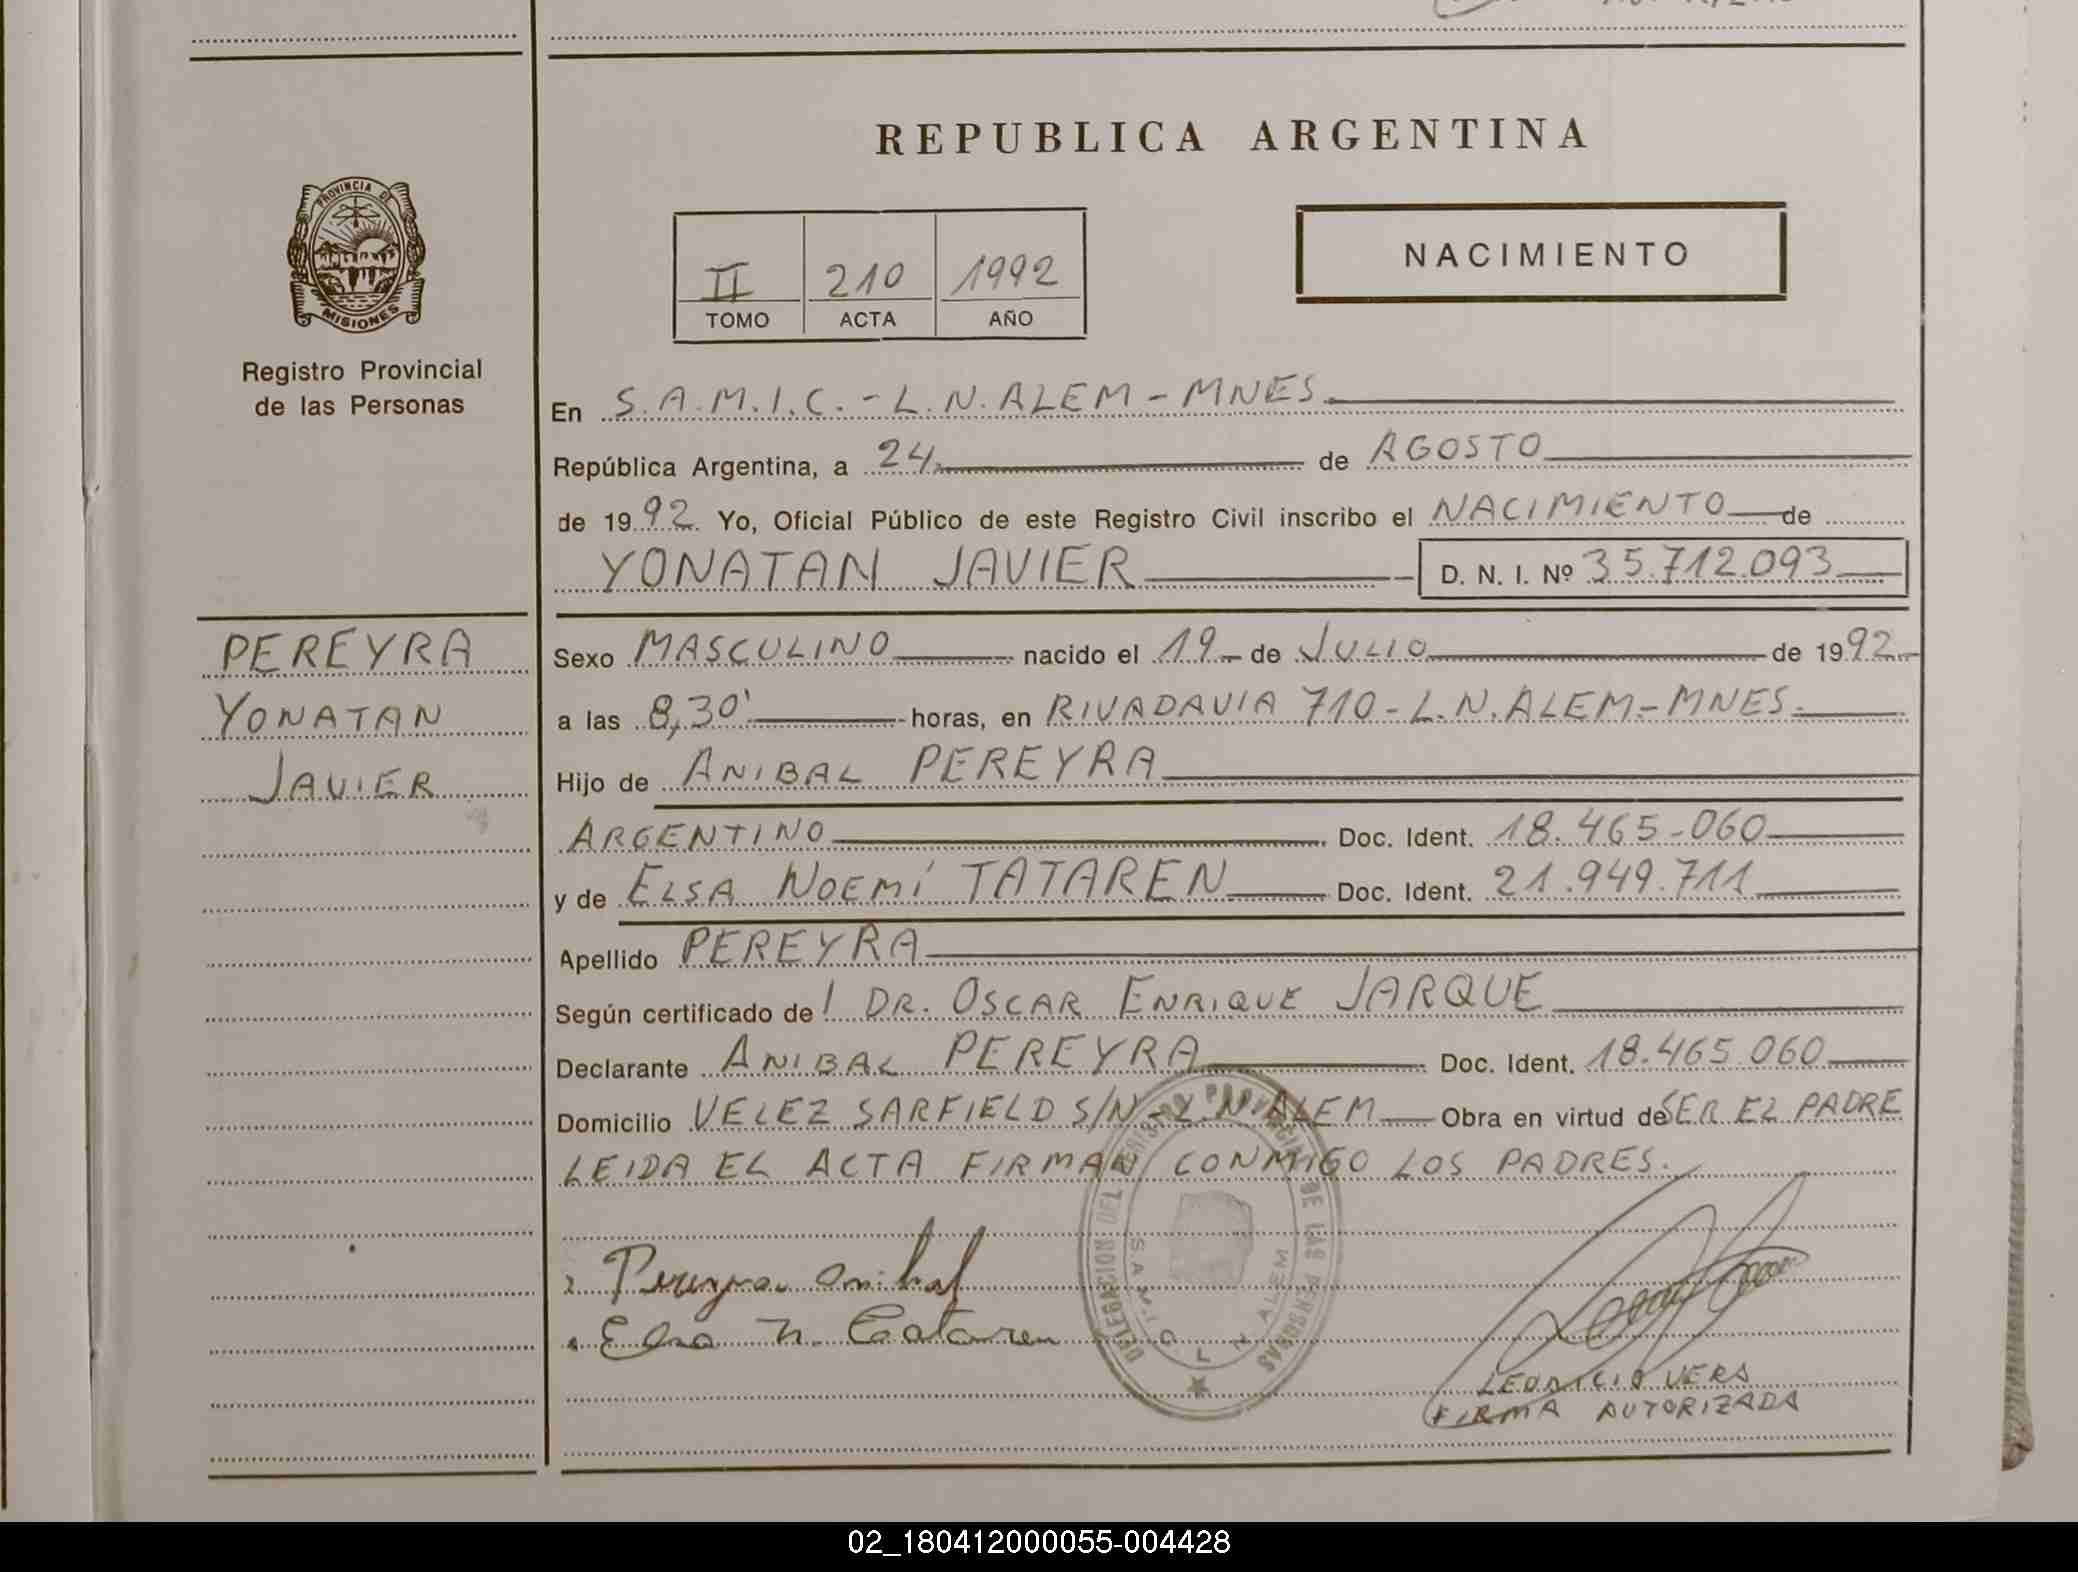 REPUBLICA ARGENTINA
PROVINCIA DE
MISIONES
Registro Provincial
de las Personas
II 210 1992
TOMO ACTA AÑO
NACIMIENTO
En S.A.M.I.C. - L.N. ALEM - MNES.
República Argentina, a 24 de AGOSTO
de 1992. Yo, Oficial Público de este Registro Civil inscribo el NACIMIENTO de
YONATAN JAVIER D. N. I. Nº 35.712.093
PEREYRA
YONATAN
JAVIER
Sexo MASCULINO nacido el 19 de JULIO de 1992
a las 8,30' horas, en RIVADAVIA 710 - L.N. ALEM - MNES.
Hijo de ANIBAL PEREYRA
ARGENTINO Doc. Ident. 18.465.060
y de ELSA NOEMÍ TATAREN Doc. Ident. 21.949.711
Apellido PEREYRA
Según certificado del DR. OSCAR ENRIQUE JARQUE
Declarante ANIBAL PEREYRA Doc. Ident. 18.465.060
Domicilio VELEZ SARFIELD S/N - L.N. ALEM Obra en virtud de SER EL PADRE
LEIDA EL ACTA FIRMAN CONMIGO LOS PADRES.
Pereyra Anibal
Elsa N. Tataren
DELEGACION DEL REGISTRO PROVINCIAL DE LAS PERSONAS
S.A.M.I.C. L. N. ALEM
LEONICIO VERA
FIRMA AUTORIZADA
02_180412000055-004428